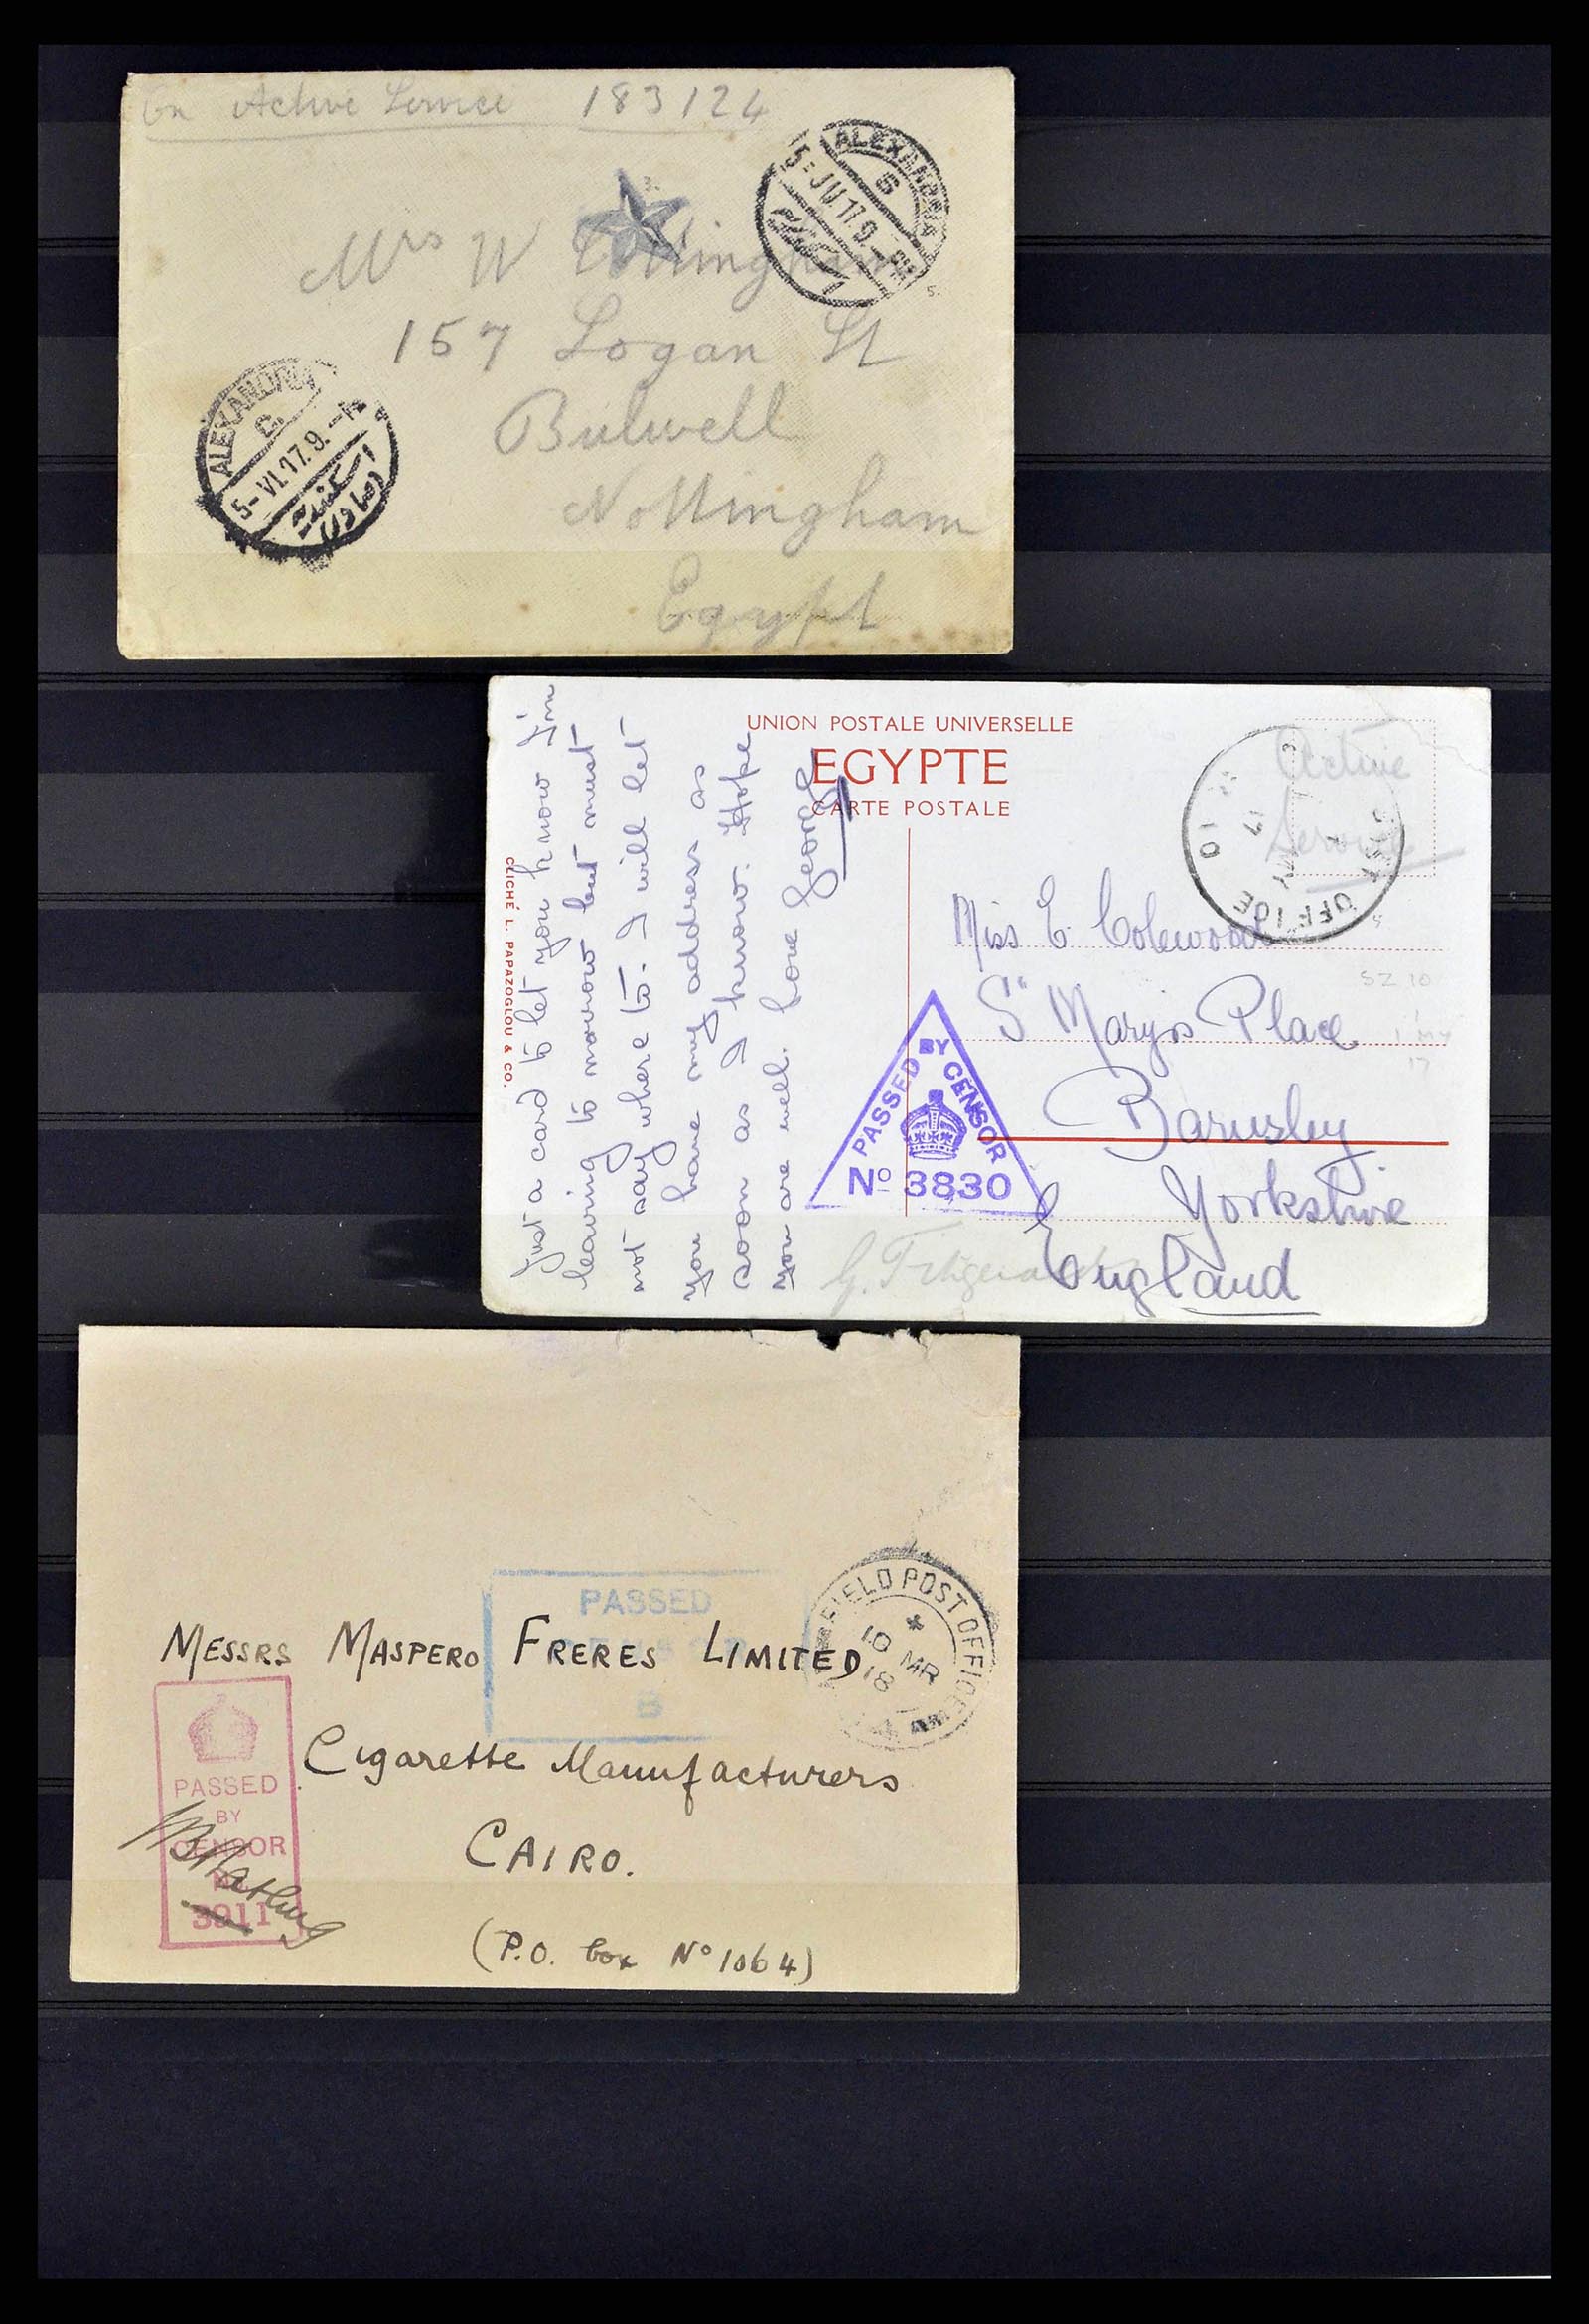 On Active Service 183124
3.
ALEXANDRIA
6
5-JU 17.9.-PM
5.
Mrs W
157 Logan St
Bulwell
Nottingham
Egypt
ALEXANDRIA
5-VI.17.9.-
اسكندرية
(صادر)
UNION POSTALE UNIVERSELLE
EGYPTE
CARTE POSTALE
CLICHÉ L. PAPAZOGLOU & CO.
Just a card to let you know I'm
leaving to morrow but must
not say where to. I will let
you have my address as
soon as I know. Hope
you are well. love George
Active
Service
OFFICE
MY
17
Miss E. Colewood
St Mary's Place
Barnsley
Yorkshire
England
SZ 10
1 MY
17
PASSED BY CENSOR
No 3830
G. Fitzgerald
PASSED
B
FIELD POST OFFICE
10 MR
18
Messrs Maspero Freres Limited
Cigarette Manufacturers
Cairo.
(P.O. box No 1064)
PASSED
BY
CENSOR
No
3911